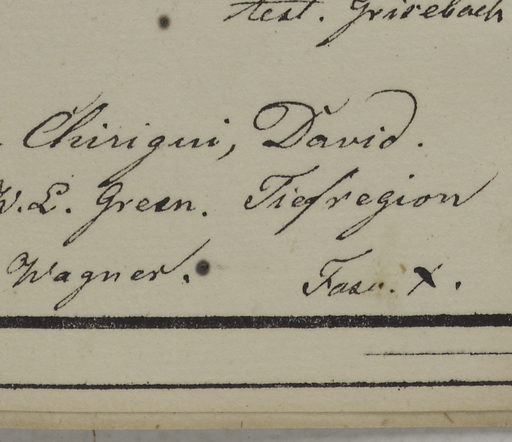 test. Grisebach
Chiriqui, David.
W. L. Green. Tiefregion
Wagner. Fasc. X.